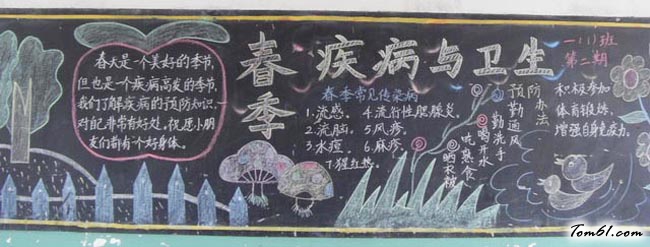 春季
疾病与卫生
一(1)班
第二期
春天是一个美好的季节,
但也是一个疾病高发的季节,
我们了解疾病的预防知识,
对自己非常有好处。祝愿小朋
友们都有个好身体。
春季常见传染病
1.流感. 4.流行性腮腺炎.
2.流脑. 5.风疹.
3.水痘 6.麻疹.
7.猩红热.
预防办法
勤通风
勤洗手
喝开水
吃熟食
晒衣被
积极参加
体育锻炼,
增强自身免疫力.
Tom61.com